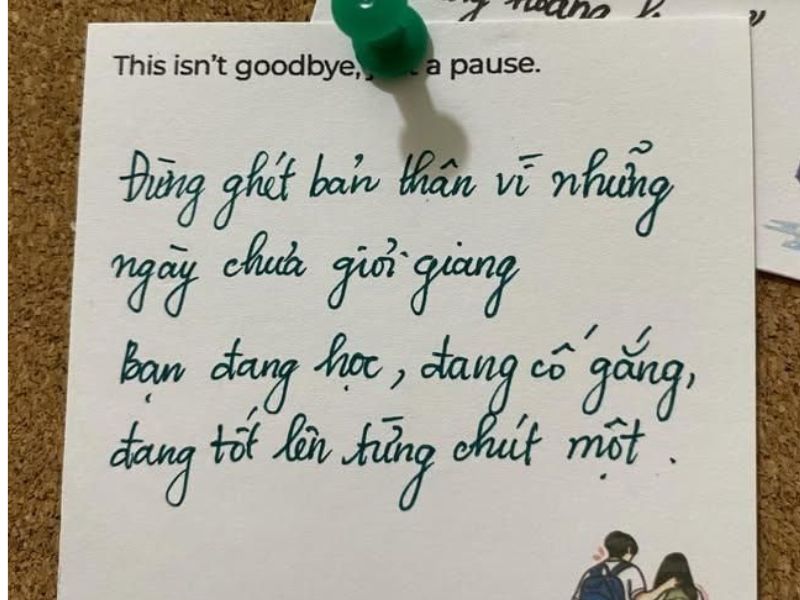 This isn't goodbye, a pause.
Đừng ghét bản thân vì những
ngày chưa giỏi giang
Bạn đang học, đang cố gắng,
đang tốt lên từng chút một.